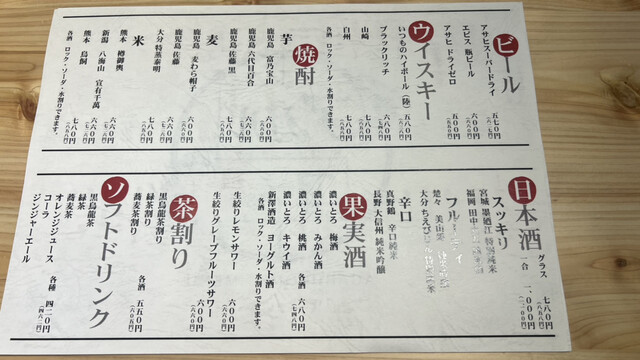 ビール
アサヒスーパードライ 五七〇円
エビス 瓶ビール 六〇〇円
アサヒ ドライゼロ 五〇〇円
ウイスキー
いつものハイボール(陸) 五八〇円
ブラックリッチ 六八〇円
山崎 七八〇円
白州 七八〇円
各酒 ロック・ソーダ・水割りできます。
焼酎
芋
鹿児島 富乃宝山 六〇〇円
鹿児島 六代目百合 六〇〇円
鹿児島 佐藤 黒 七八〇円
麦
鹿児島 麦わら帽子 六〇〇円
鹿児島 佐藤 七八〇円
大分 特蒸泰明 六〇〇円
米
熊本 樽御輿 六〇〇円
新潟 八海山 宜有千萬 六六〇円
熊本 鳥飼 七八〇円
各酒 ロック・ソーダ・水割りできます。
日本酒
グラス 七八〇円
一合 一、〇〇〇円
スッキリ
宮城 墨廼江 特別純米
福岡 田中
フル
楚々 美山
大分 ちえび
辛口
真野鶴 辛口純米
長野 大信州 純米吟醸
果実酒
濃いとろ 梅酒
濃いとろ みかん酒
濃いとろ 桃酒
濃いとろ キウイ酒
新澤酒造 ヨーグルト酒
各酒 六八〇円
各酒 ロック・ソーダ・水割りできます。
生絞りレモンサワー 六〇〇円
生絞りグレープフルーツサワー 六〇〇円
茶割り
黒烏龍茶割り
緑茶割り
蕎麦茶割り
各酒 五五〇円
(六〇五円)
ソフトドリンク
黒烏龍茶
緑茶
蕎麦茶
オレンジジュース
コーラ
ジンジャーエール
各種 四二〇円
(四六二円)